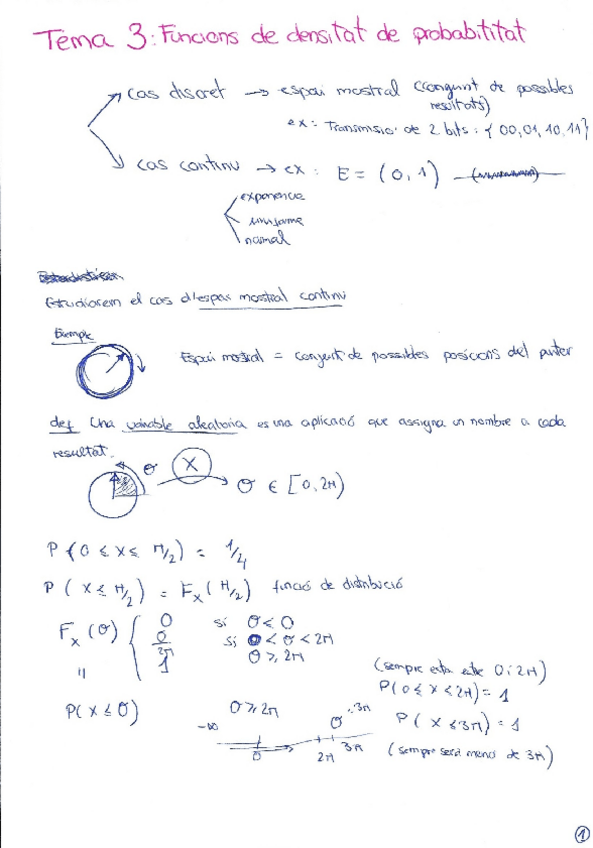 Tema 3: Funcions de densitat de probabititat
cas discret → espai mostral (conjunt de possibles
resultats)
ex: Transmisio de 2 bits: { 00, 01, 10, 11}
cas continu → ex: E = (0, 1)
exponencial
uniforme
normal
Estudiarem el cas d'espai mostral continu
Exemple
Espai mostral = conjunt de possibles posicions del punter
def Una variable aleatoria es una aplicació que assigna un nombre a cada
resultat.
θ X θ ∈ [0, 2π)
P (0 ≤ X ≤ π/2) = 1/4
P ( X ≤ π/2) = Fx (π/2) funció de distribució
Fx (θ) { 0 si θ < 0
θ/2π si 0 < θ < 2π
1 θ ≥ 2π
(sempre esta entre 0 i 2π)
"
P(0 ≤ X < 2π) = 1
P( X ≤ θ) θ ≥ 2π θ 3π
P( X ≤ 3π) = 1
-∞ 0 2π 3π
(sempre serà menor de 3π)
1